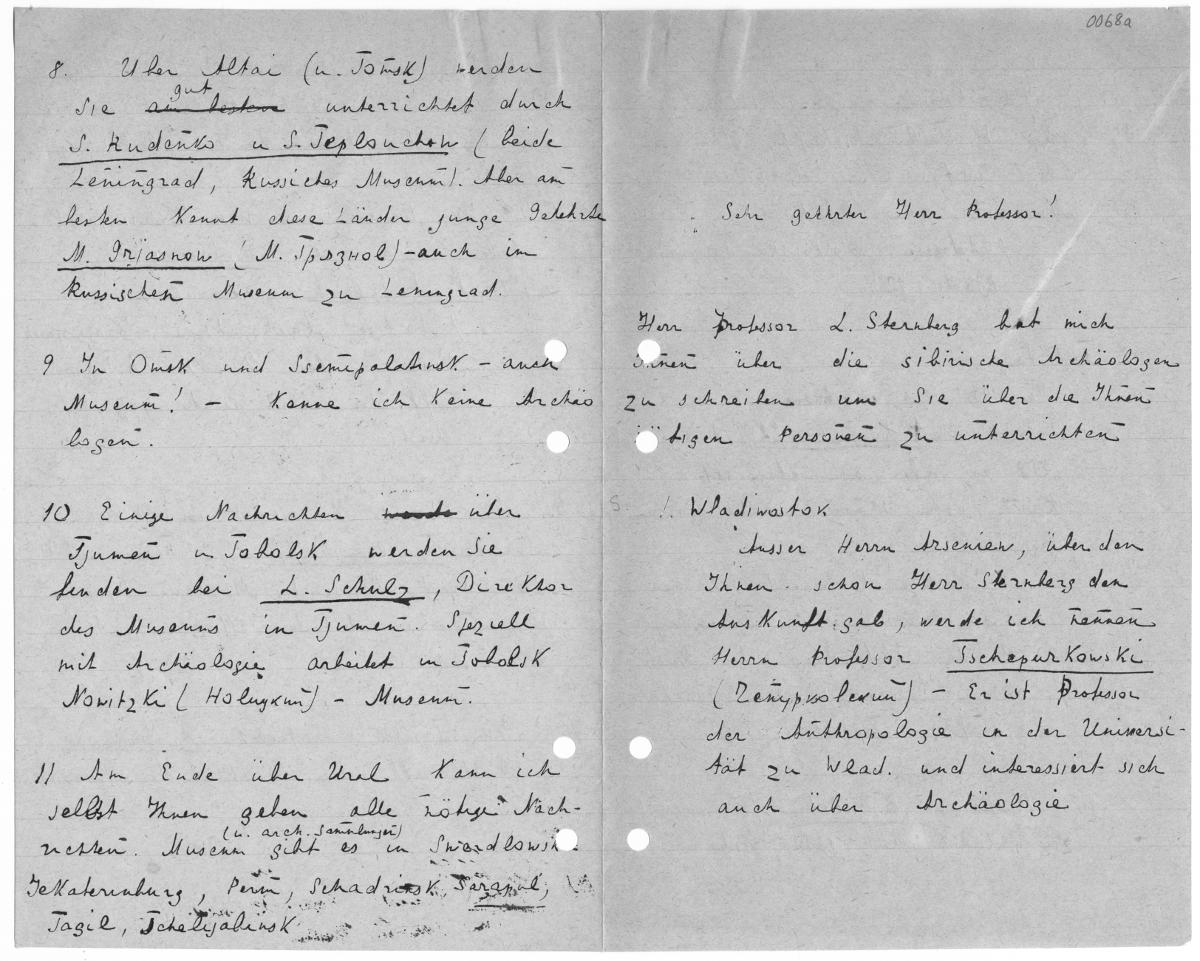 8. Uber Altai (u. Tomsk) werden
gut
Sie am besten unterrichtet durch
S. Rudenko u S. Teplouchow (beide
Leningrad, Russiches Museum). Aber am
besten kennt diese Länder junge Gelehrte
M. Grjasnow (М. Грязнов) – auch im
Russischen Museum zu Leningrad.
9 In Omsk und Ssemipalatinsk – auch
Museum! – kenne ich keine Archäo
logen.
10 Einige Nachrichten werde über
Tjumen u Tobolsk werden Sie
finden bei L. Schulz, Direktor
des Museums in Tjumen. Speziell
mit Archäologie arbeitet in Tobolsk
Nowitzki (Новицкий) – Museum.
11 Am Ende über Ural kann ich
selbst Ihnen geben alle nötige Nach-
(u. arch. Sammlungen)
richten. Museum gibt es in Swerdlowsk
Jekaterinburg, Perm, Schadrinsk, Sarapul,
Tagil, Tscheljabinsk
0068a
Sehr geehrter Herr Professor!
Herr Professor L. Sternberg bat mich
Ihnen über die sibirische Archäologen
zu schreiben um Sie über die Ihnen
nötigen Personen zu unterrichten
1. Wladiwostok
Ausser Herrn Arseniew, über den
Ihnen schon Herr Sternberg den
Auskunft gab, werde ich nennen
Herrn Professor Tschepurkowski
(Чепурковский) – Er ist Professor
der Anthropologie in der Universi-
tät zu Wlad. und interessiert sich
auch über Archäologie